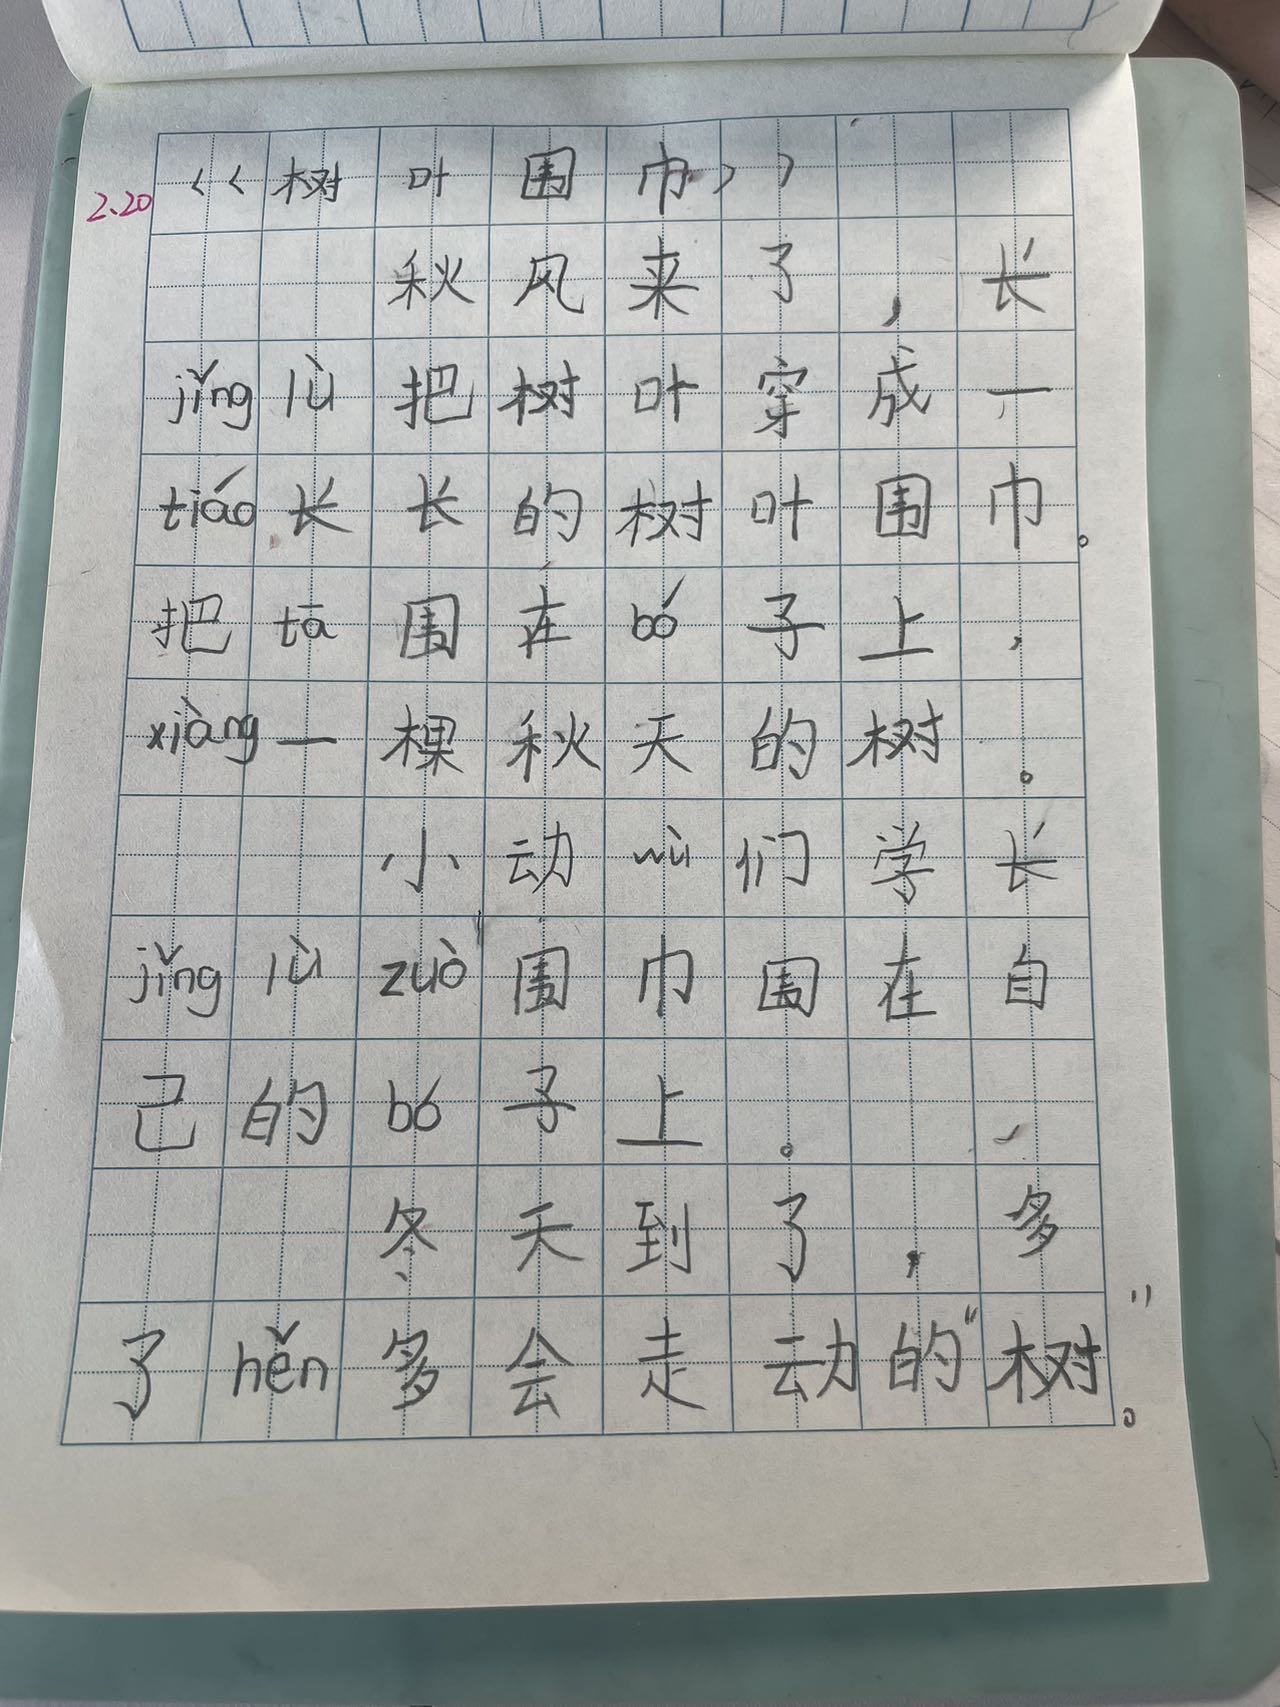 2.20 《树叶围巾》
秋风来了，长
jǐng lù 把树叶穿成一
tiáo 长长的树叶围巾。
把 tā 围在 bó 子上，
xiàng 一棵秋天的树。
小动 wù 们学长
jǐng lù zuò 围巾围在自
己的 bó 子上。
冬天到了，多
了 hěn 多会走动的“树”。